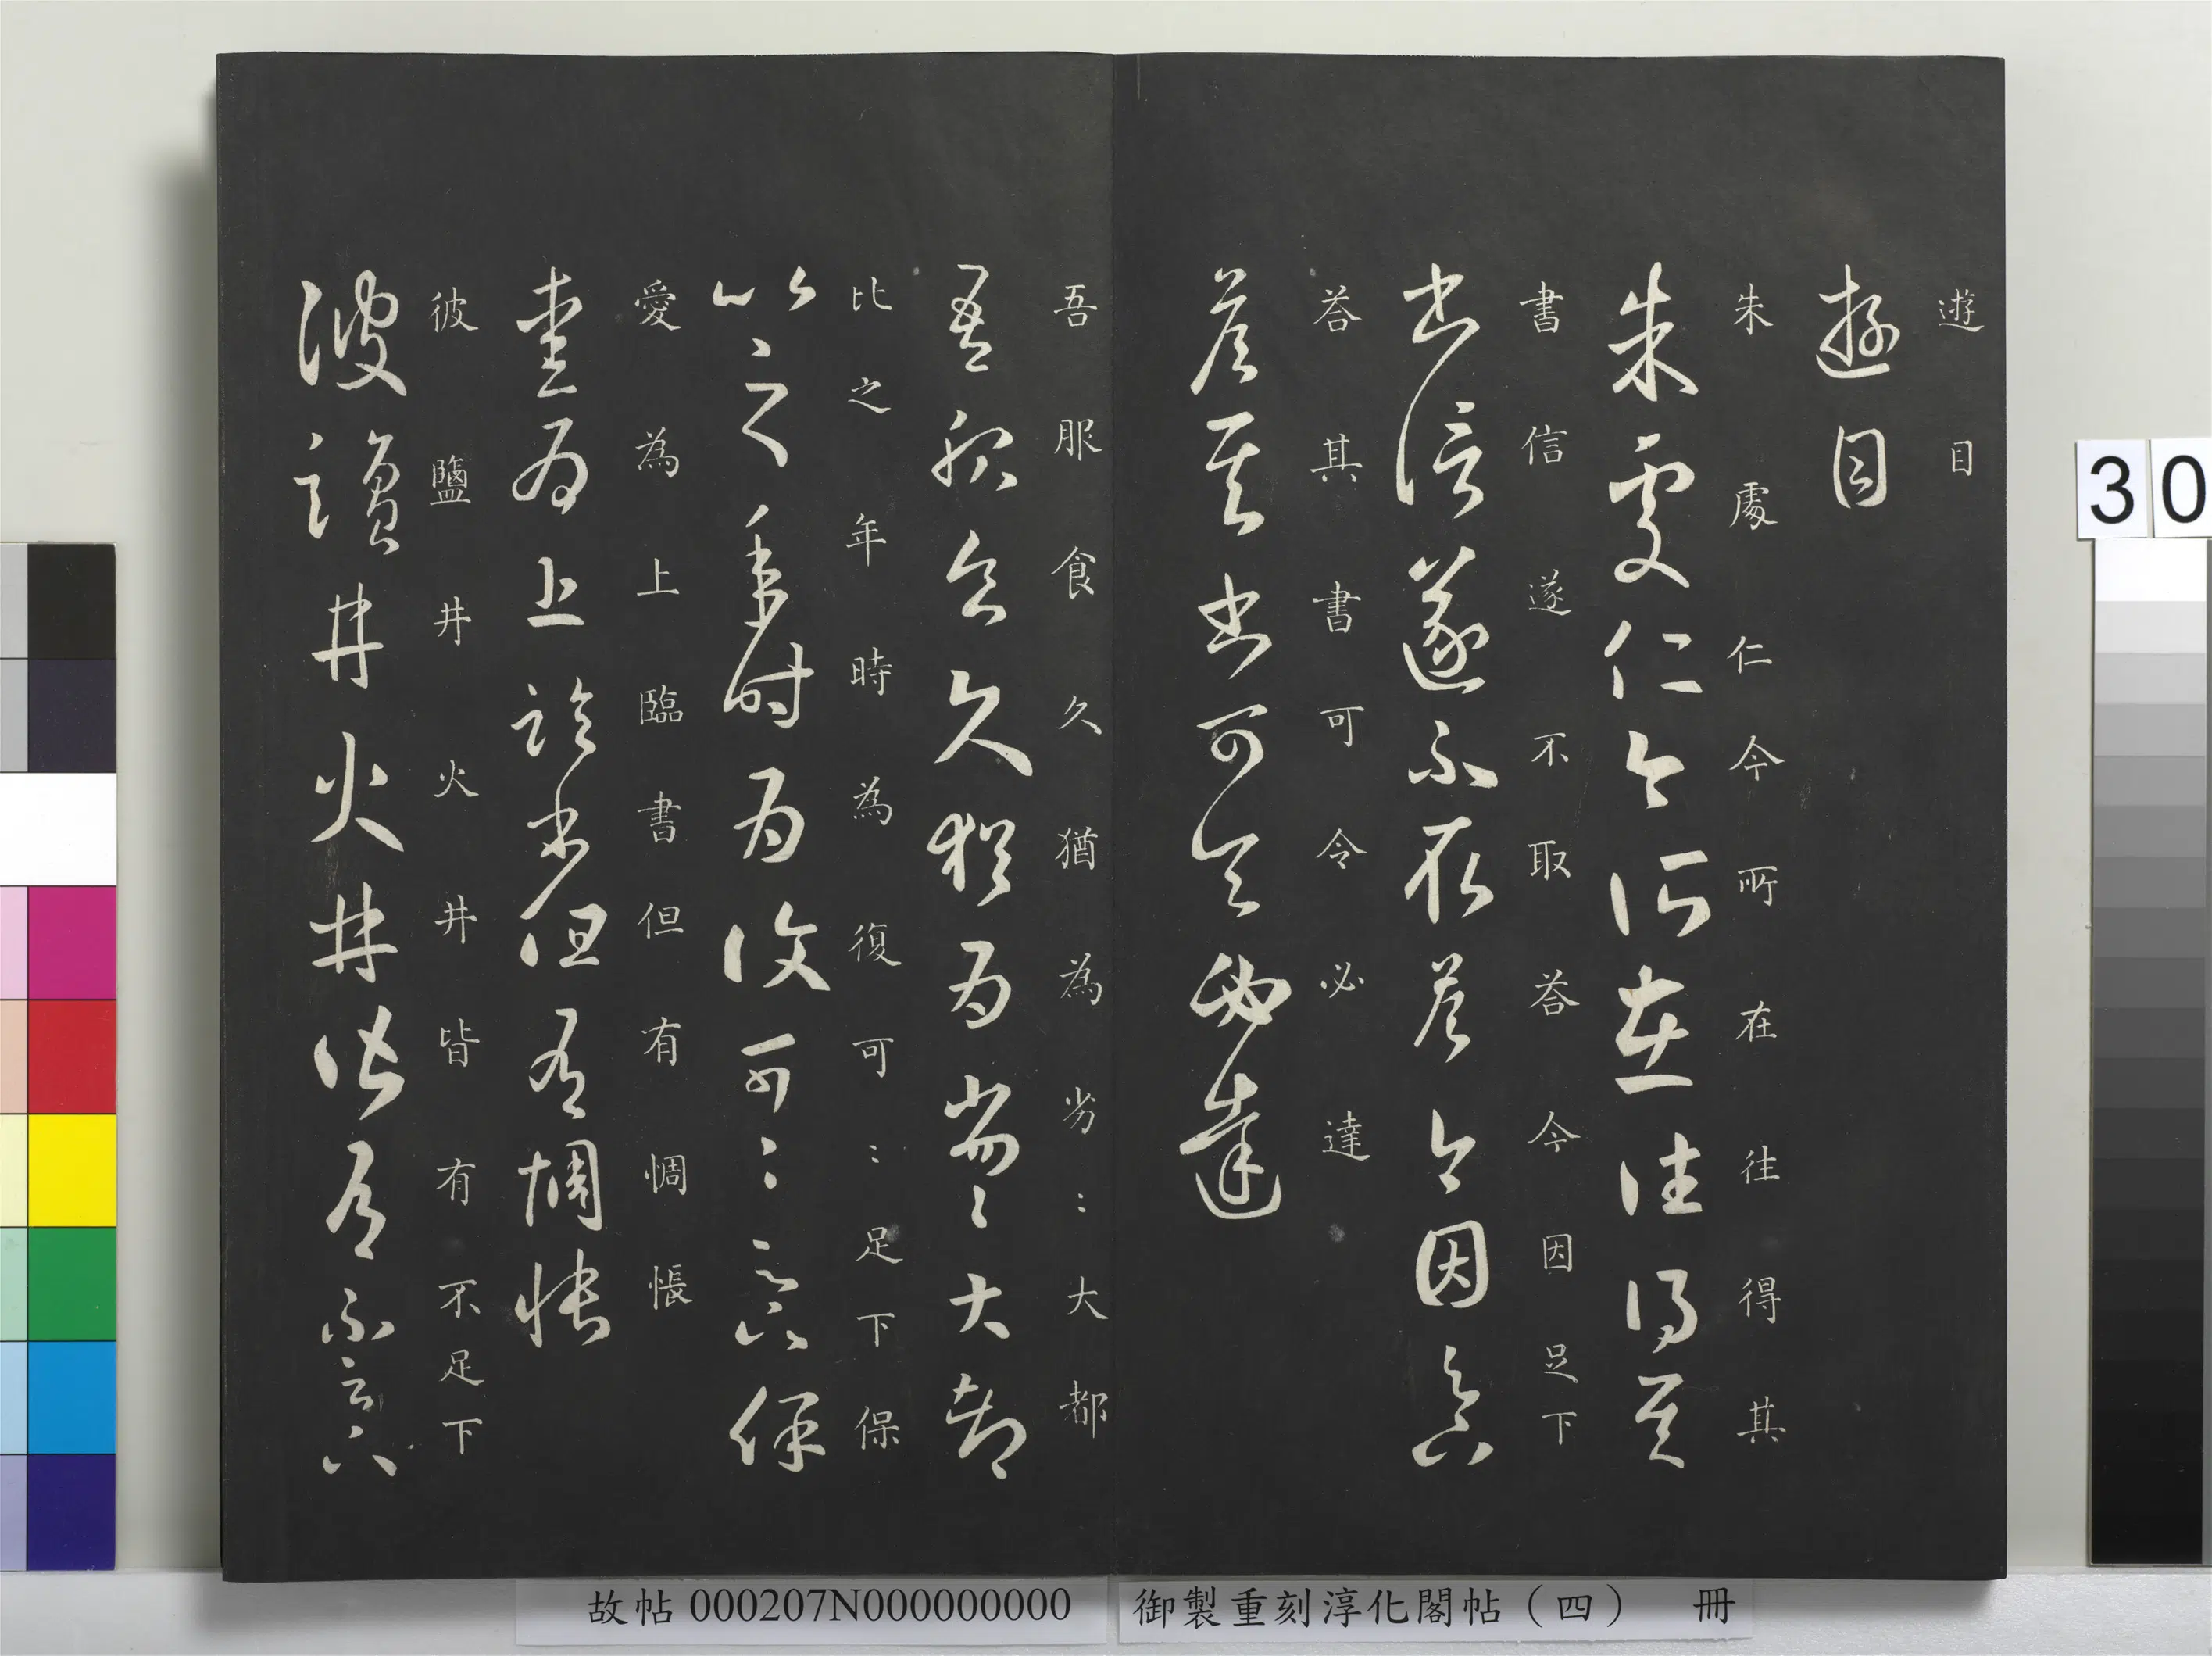 遊目
遊目
朱處仁今所在往得其
朱處仁今所在往得其
書信遂不取荅今因足下
書信遂不取荅今因足下
荅其書可令必達
荅其書可令必達
吾服食久猶為劣：大都
吾服食久猶為劣〻大都
比之年時為復可：足下保
比之年時為復可〻足下保
愛為上臨書但有惆悵
愛為上臨書但有惆悵
彼鹽井火井皆有不足下
彼鹽井火井皆有不足下
30
故帖 000207N000000000
御製重刻淳化閣帖（四） 冊